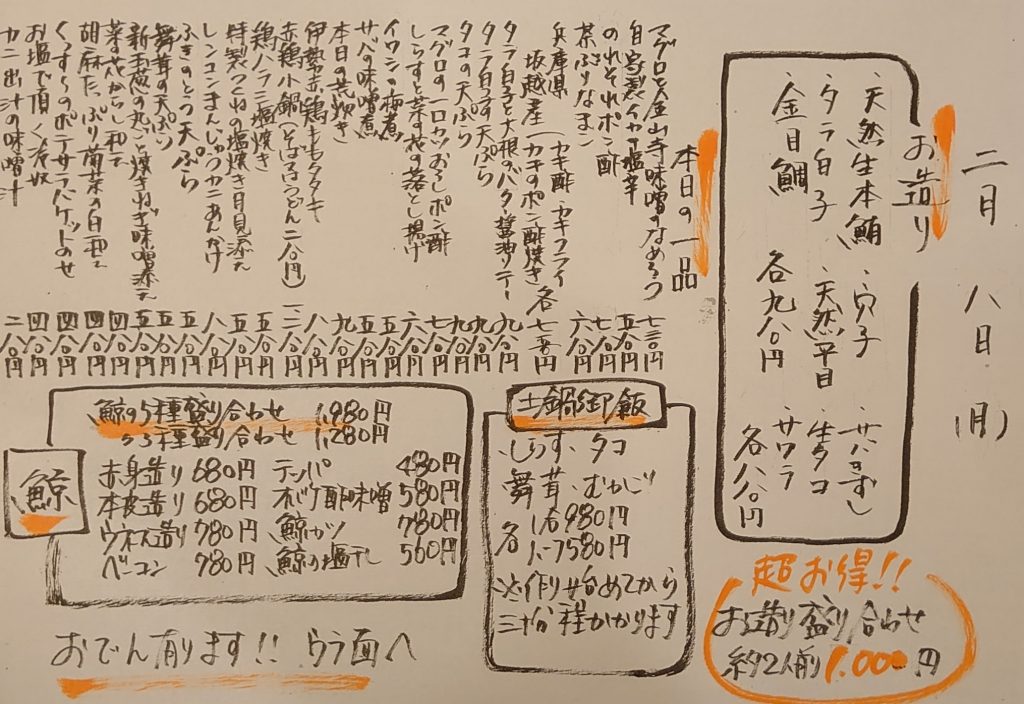 二月 八日(月)
お造り
・天然生本鮪 ・穴子 ・サバきずし
・タラ白子 ・天然平目 ・生タコ
・金目鯛 ・サワラ
各九八〇円 各八八〇円
本日の一品
マグロと金山寺味噌のなめろう 七三〇円
自家製イカの塩辛 五八〇円
のれそれポン酢 七八〇円
茶ぶりなまこ 六八〇円
兵庫県坂越産(カキ酢・カキフライ・カキのポン酢焼き 各七三〇円
タラ白子と大根のバター醤油ソテー 九八〇円
タラ白子天ぷら 九八〇円
タコの天ぷら 九八〇円
マグロの一口カツおろしポン酢 八八〇円
しらすと菜の花の落とし揚げ 六八〇円
イワシの梅煮 五八〇円
サバの味噌煮 五八〇円
本日の荒炊き 九八〇円
伊勢赤鶏ももタタキ 八八〇円
赤鶏小鍋(そば又はうどん二八〇円) 一二八〇円
鶏ハラミ塩焼き 五八〇円
特製つくねの塩焼き月見添え 五八〇円
レンコンまんじゅうカニあんかけ 八八〇円
ふきのとう天ぷら 五八〇円
舞茸の天ぷら 五八〇円
新玉葱の丸ごと焼きねぎ味噌添え 五八〇円
菜の花からし和え 四八〇円
胡麻たっぷり菊菜の白和え 四八〇円
くんすぅ〜のポテサラバケットのせ 四八〇円
お塩で頂く冷奴 四八〇円
カニ出汁の味噌汁 二八〇円
土鍋御飯
・しらす・タコ
舞茸・むかご
各 1合980円
1.5合1580円
※作り始めてから
三十分程かかります
鯨
鯨の5種盛り合わせ 1,980円
〃3種盛り合わせ 1,280円
赤身造り 680円 テッパ 480円
本皮造り 680円 オバケ酢味噌 580円
ウネス造り 780円 鯨カツ 780円
ベーコン 780円 鯨の塩干し 560円
超お得!!
お造り盛り合わせ
約2人前 1.000円
おでん有ります!! ウラ面へ